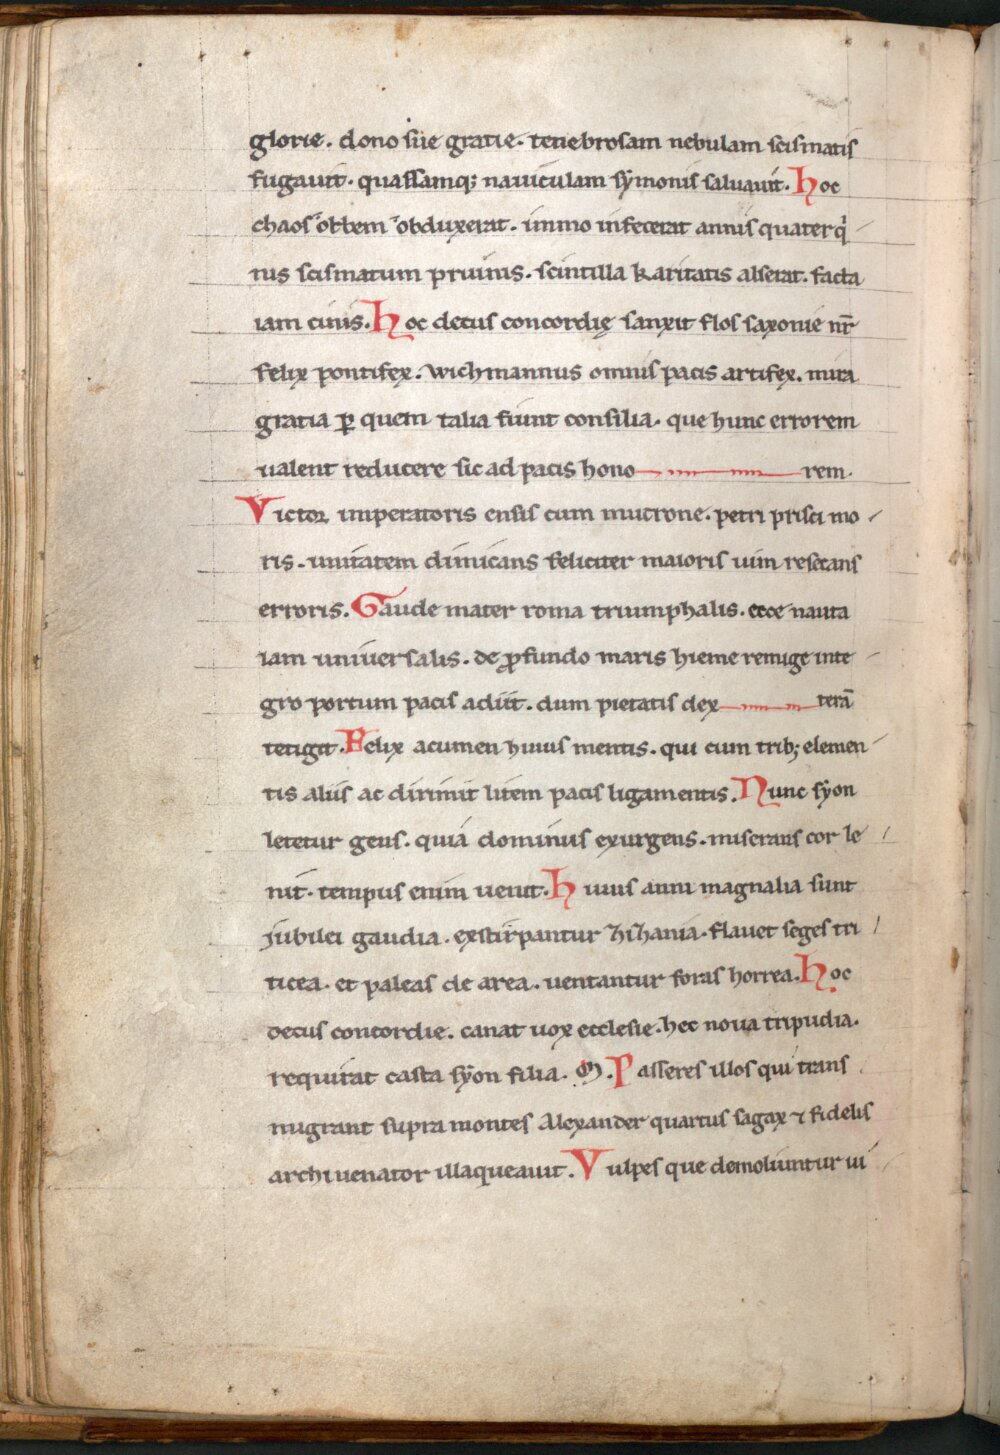 glorie. dono sue gratie. tenebrosam nebulam scismatis
fugauit. quassamq; nauiculam symonis saluauit. Hoc
chaos orbem obduxerat. immo infecerat annis quaterq̇
nis scismatum pruinis. scintilla karitatis alserat. facta
iam cinis. Hoc decus concordię sanxit flos saxonie nr̄
felix pontifex. wichmannus omnis pacis artifex. mira
gratia ꝑ quem talia fiunt consilia. que hunc errorem
ualent reducere sic ad pacis hono rem.
Victor imperatoris ensis cum mucrone. petri prisci mo
ris. unitatem dimicans feliciter maioris uim resecans
erroris. Gaude mater roma triumphalis. ecce nauta
iam uniuersalis. de ꝓfundo maris hieme remige inte
gro portum pacis adiit. dum pietatis dex terā
tetigit. Felix acumen huius mentis. qui cum trib; elemen
tis aliis ac dirimit litem pacis ligamentis. Nunc syon
letetur gens. quia dominus exurgens. miserans cor le
nit. tempus enim uenit. Huius anni magnalia sunt
jubilei gaudia. exstirpantur zizania. flauet seges tri
ticea. et paleas de area. uentantur foras horrea. Hoc
decus concordie. canat uox ecclesie. hec noua tripudia.
requirat casta syon filia. Passeres illos qui trans
migrant supra montes Alexander quartus sagax ⁊ fidelis
archiuenator illaqueauit. Vulpes que demoliuntur ui